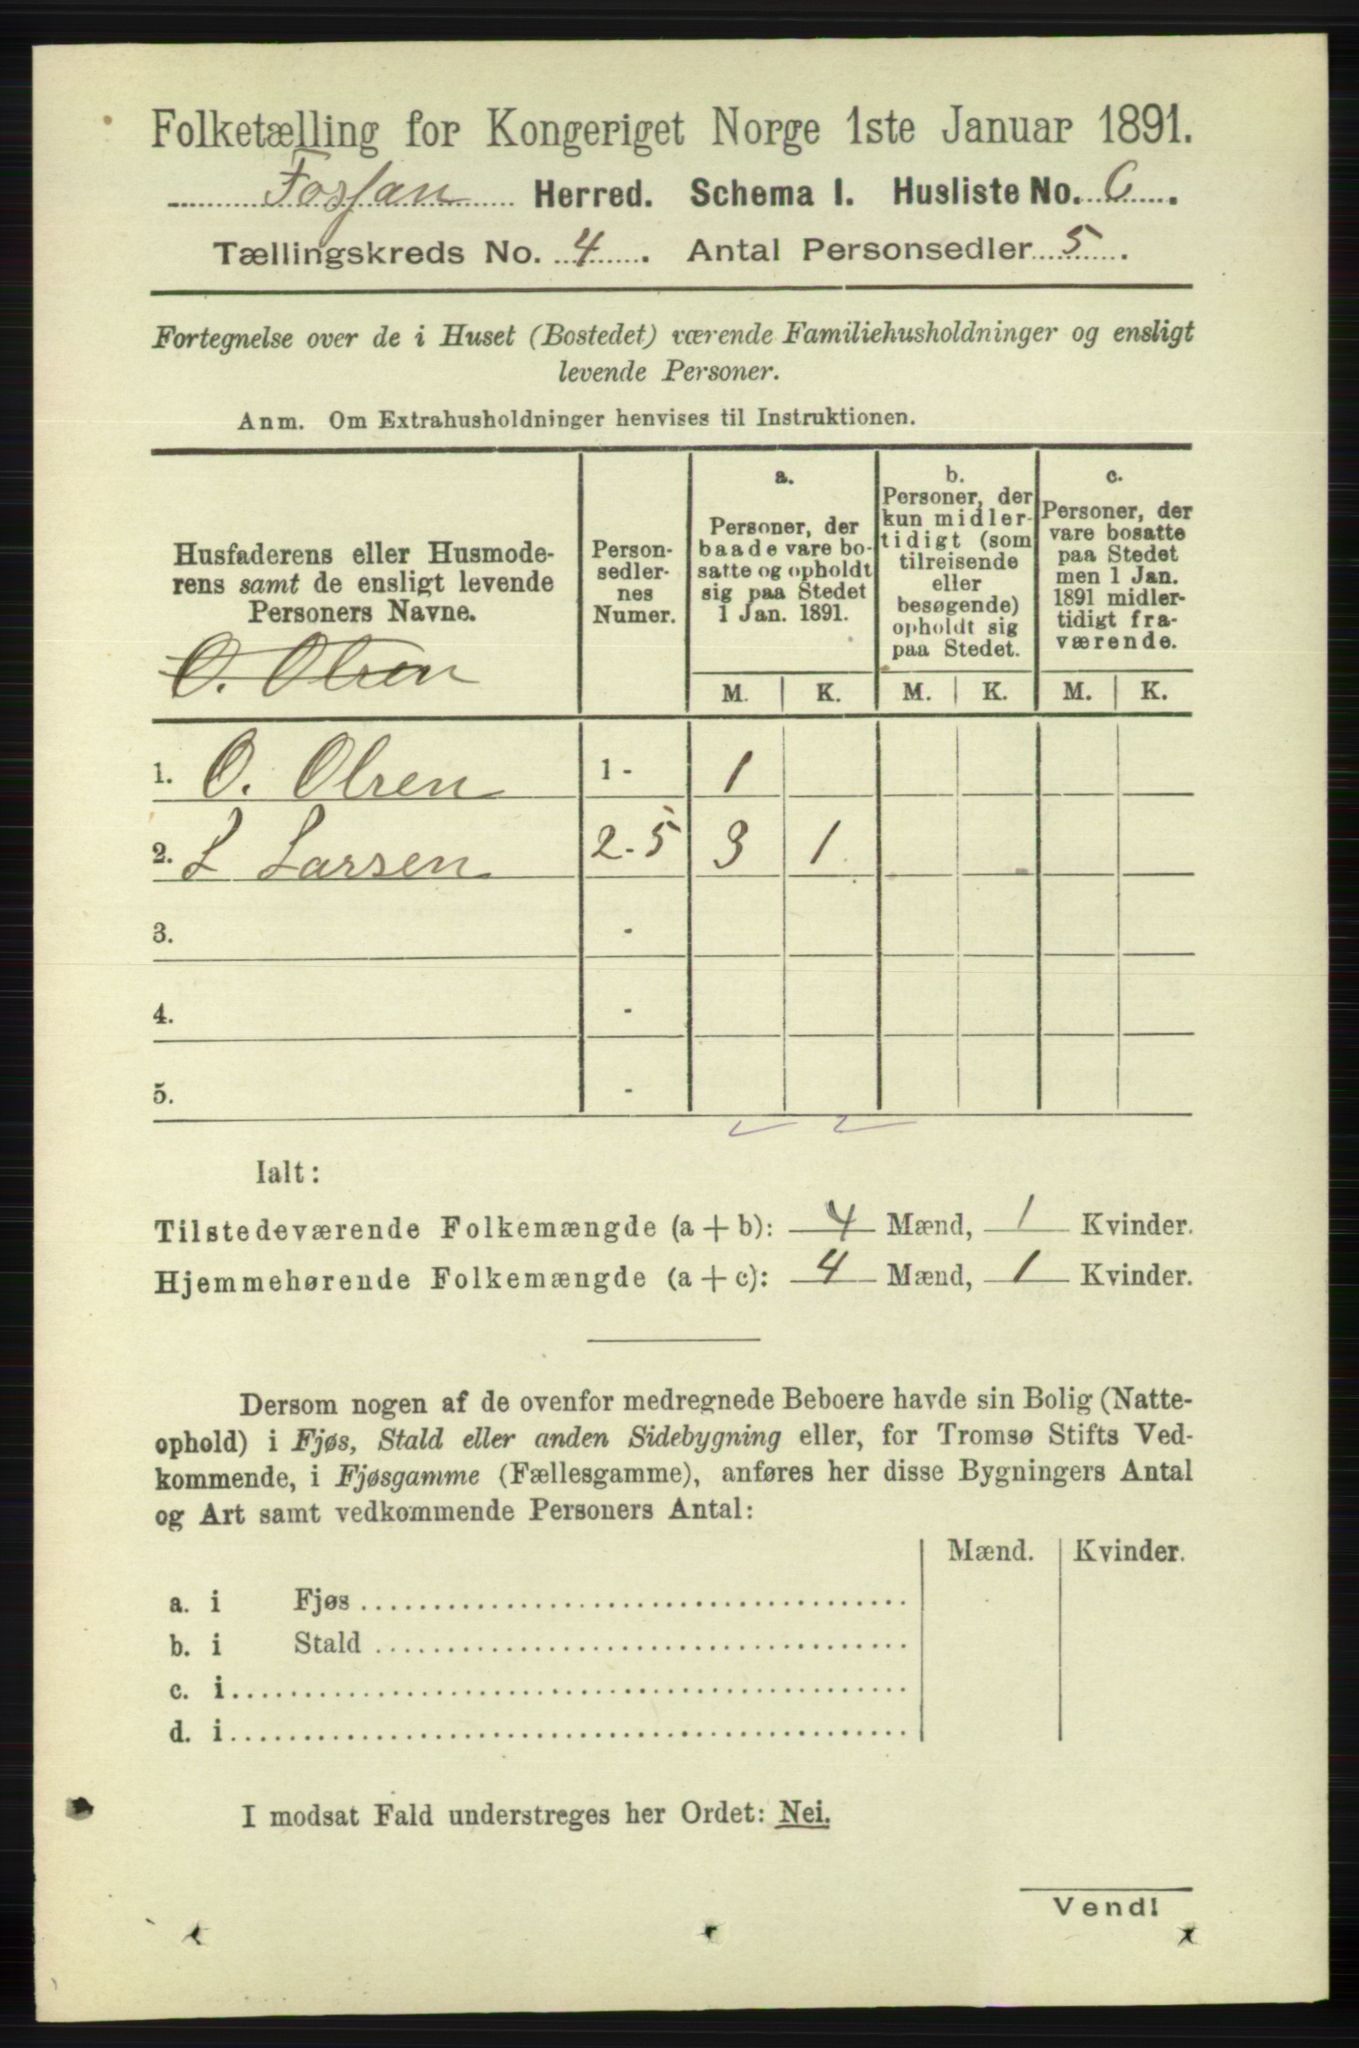 Folketælling for Kongeriget Norge 1ste Januar 1891.
Fossan Herred. Schema I. Husliste No. 6.
Tællingskreds No. 4. Antal Personsedler 5.
Fortegnelse over de i Huset (Bostedet) værende Familiehusholdninger og ensligt
levende Personer.
Anm. Om Extrahusholdninger henvises til Instruktionen.
Husfaderens eller Husmode-
rens samt de ensligt levende
Personers Navne.
O. Olsen
Person-
sedler-
nes
Numer.
a.
Personer, der
baade vare bo-
satte og opholdt
sig paa Stedet
1 Jan. 1891.
b.
Personer, der
kun midler-
tidigt (som
tilreisende
eller
besøgende)
opholdt sig
paa Stedet.
c.
Personer, der
vare bosatte
paa Stedet
men 1 Jan.
1891 midler-
tidigt fra-
værende.
M. K. M. K. M. K.
1. O. Olsen 1 - 1
2. L Larsen 2-5 3 1
3. -
4. -
5. -
Ialt:
Tilstedeværende Folkemængde (a+b): 4 Mænd, 1 Kvinder.
Hjemmehørende Folkemængde (a+c): 4 Mænd, 1 Kvinder.
Dersom nogen af de ovenfor medregnede Beboere havde sin Bolig (Natte-
ophold) i Fjøs, Stald eller anden Sidebygning eller, for Tromsø Stifts Ved-
kommende, i Fjøsgamme (Fællesgamme), anføres her disse Bygningers Antal
og Art samt vedkommende Personers Antal:
Mænd. Kvinder.
a. i Fjøs
b. i Stald
c. i
d. i
I modsat Fald understreges her Ordet: Nei.
Vend!